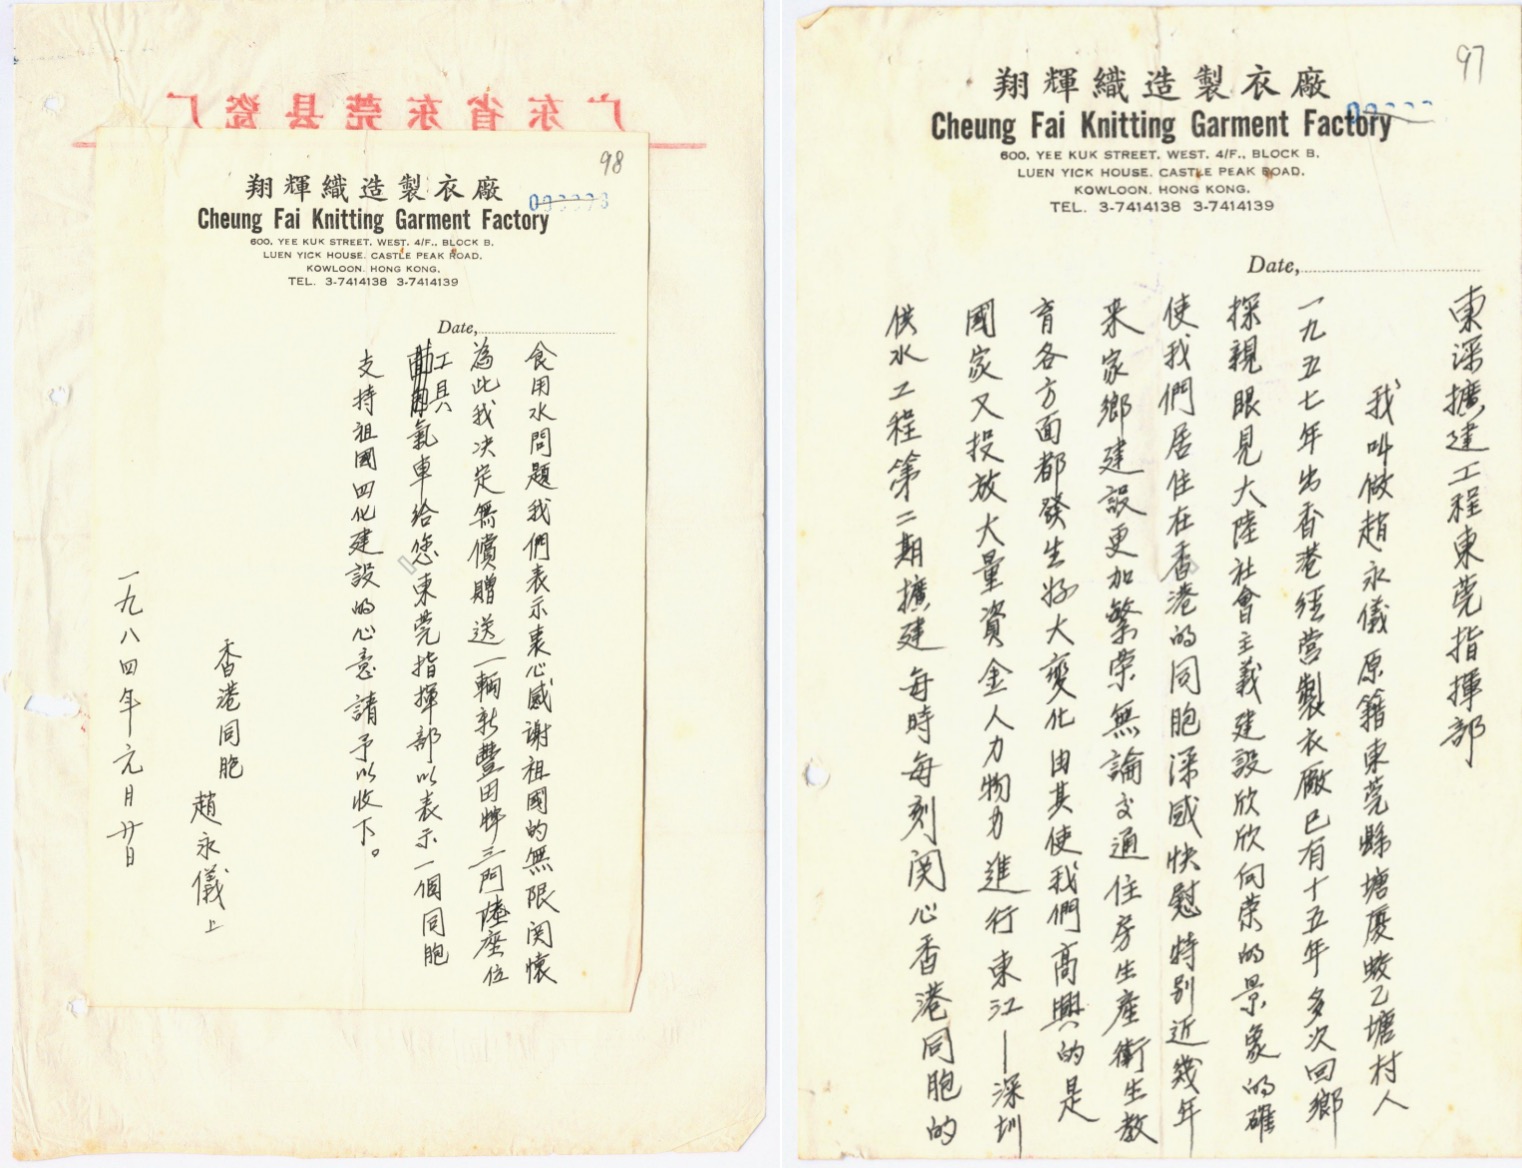 97
翔輝織造製衣廠
Cheung Fai Knitting Garment Factory
600, YEE KUK STREET, WEST, 4/F., BLOCK B,
LUEN YICK HOUSE, CASTLE PEAK ROAD,
KOWLOON, HONG KONG.
TEL. 3-7414138 3-7414139
Date,
東深擴建工程東莞指揮部
我叫做趙永儀原籍東莞縣塘廈蛟乙塘村人
一九五七年出香港經营製衣廠已有十五年多次回鄉
探親眼見大陸社會主義建設欣欣向荣的景象的確
使我們居住在香港的同胞深感快慰特别近幾年
来家鄉建設更加繁荣無論交通住房生産衛生教
育各方面都發生好大變化由其使我們高興的是
國家又投放大量資金人力物力進行東江—深圳
供水工程第二期擴建每時每刻関心香港同胞的
广东省东莞县瓷厂
98
翔輝織造製衣廠
Cheung Fai Knitting Garment Factory
600, YEE KUK STREET, WEST, 4/F., BLOCK B,
LUEN YICK HOUSE, CASTLE PEAK ROAD,
KOWLOON, HONG KONG.
TEL. 3-7414138 3-7414139
Date,
食用水問題我們表示衷心感謝祖國的無限関懷
為此我决定無償贈送一輛新豐田牌三門陸座位
工具氣車給您東莞指揮部以表示一個同胞
支持祖國四化建設的心意請予以收下。
香港同胞
趙永儀上
一九八四年元月廿日